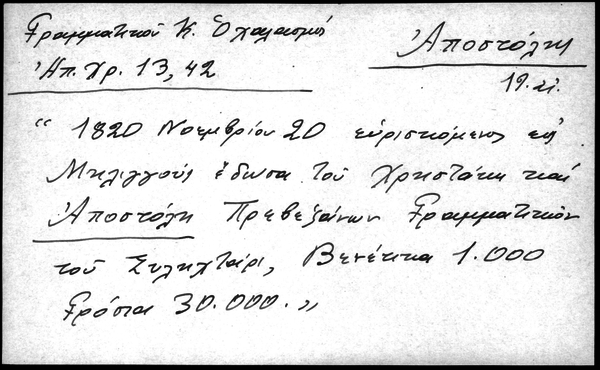 Γραμματικοῦ Κ. Ὁ χαλασμός
Ἠπ. Χρ. 13, 42
Ἀποστόλη
19. αἰ.
“ 1820 Νοεμβρίου 20 εὑρισκόμενος εἰς
Μηλιγγούς ἔδωσα τοῦ Χρηστάκη καί
Ἀποστόλη Πρεβεζάνων Γραμματικῶν
τοῦ Συληχτάρι, Βενέτικα 1.000
Γρόσια 30.000. „